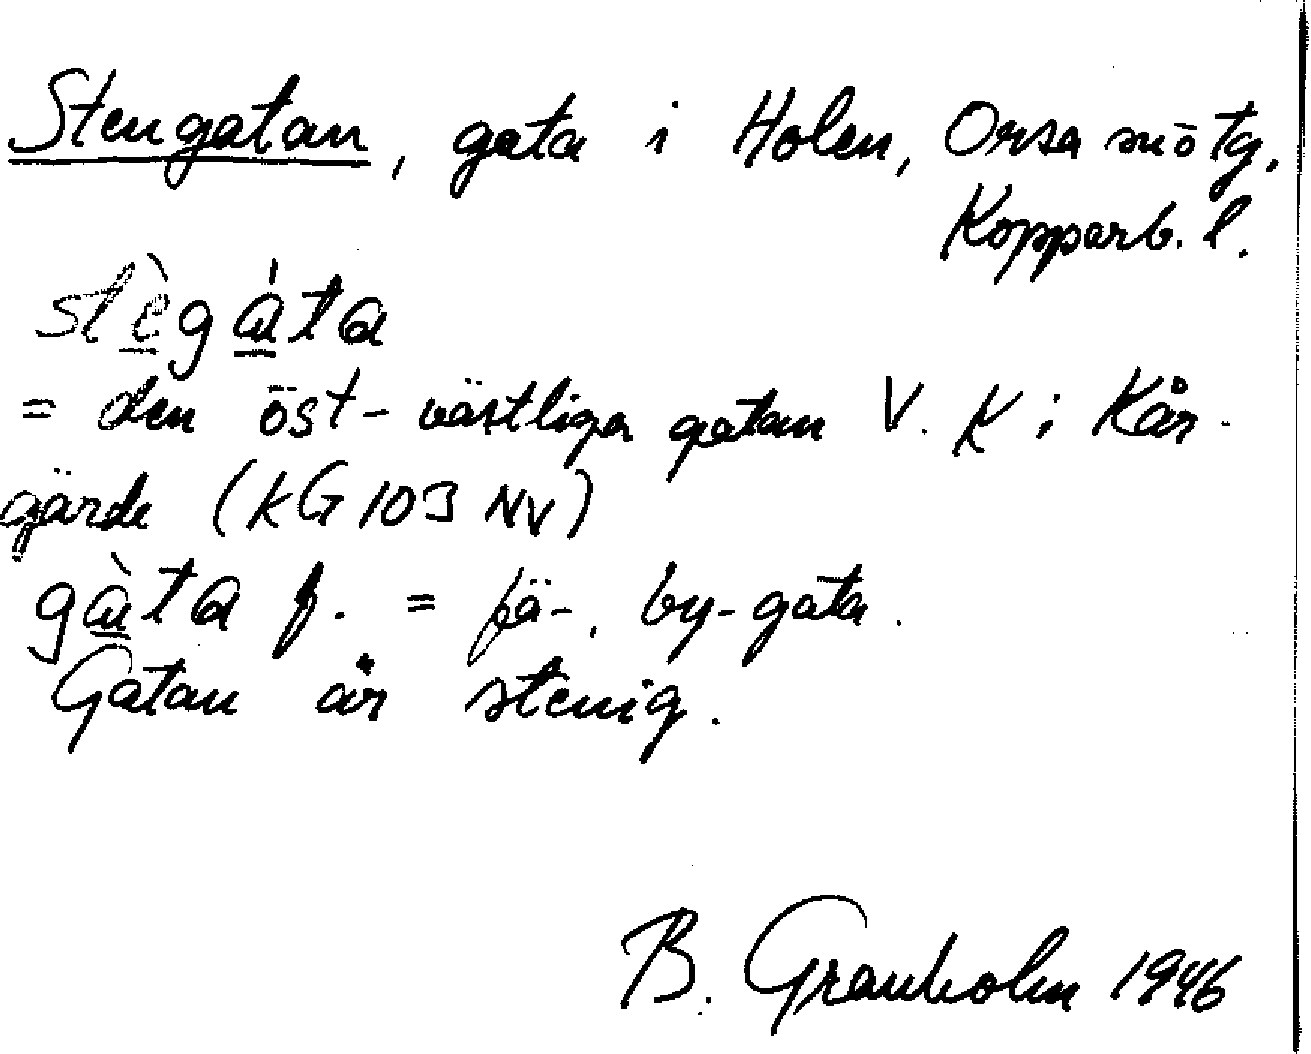 Stengatan, gata i Holen, Orsa sn ö tg.
Kopparb. l.
stègáta
= den öst-västliga gatan V. K i Kår-
gärde (KG 103 NV)
gàta f. = fä-, by-gata.
Gatan är stenig.
B. Granholm 1946